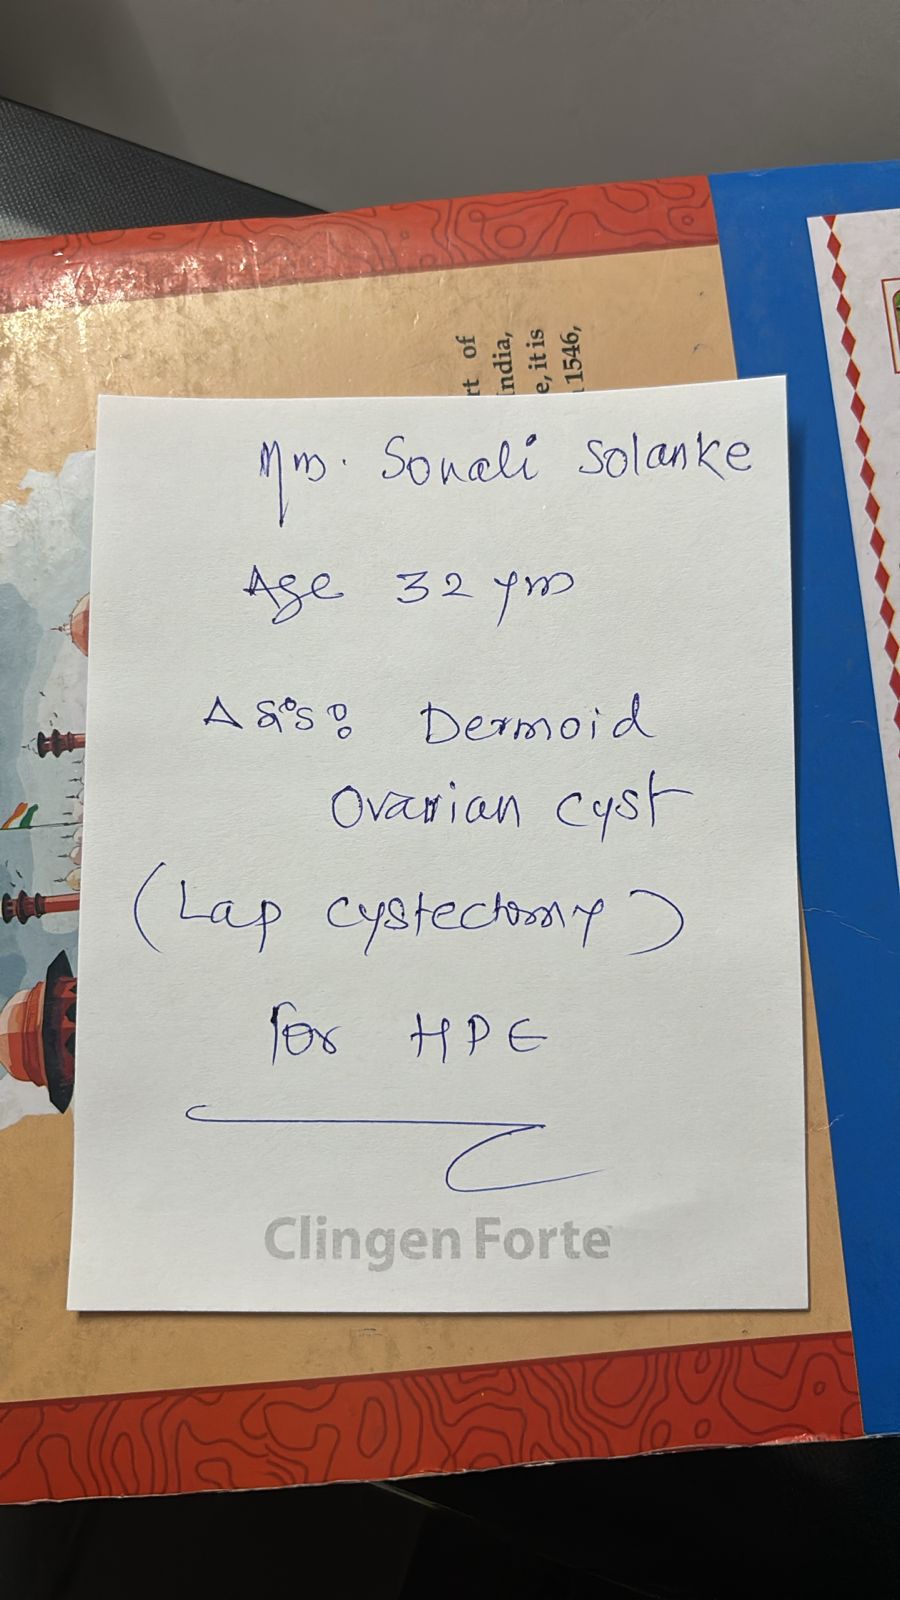 rt of
India,
e, it is
1546,
Mrs. Sonali Solanke
Age 32 yrs
Δsis: Dermoid
Ovarian Cyst
(Lap cystectomy)
for HPE
Clingen Forte